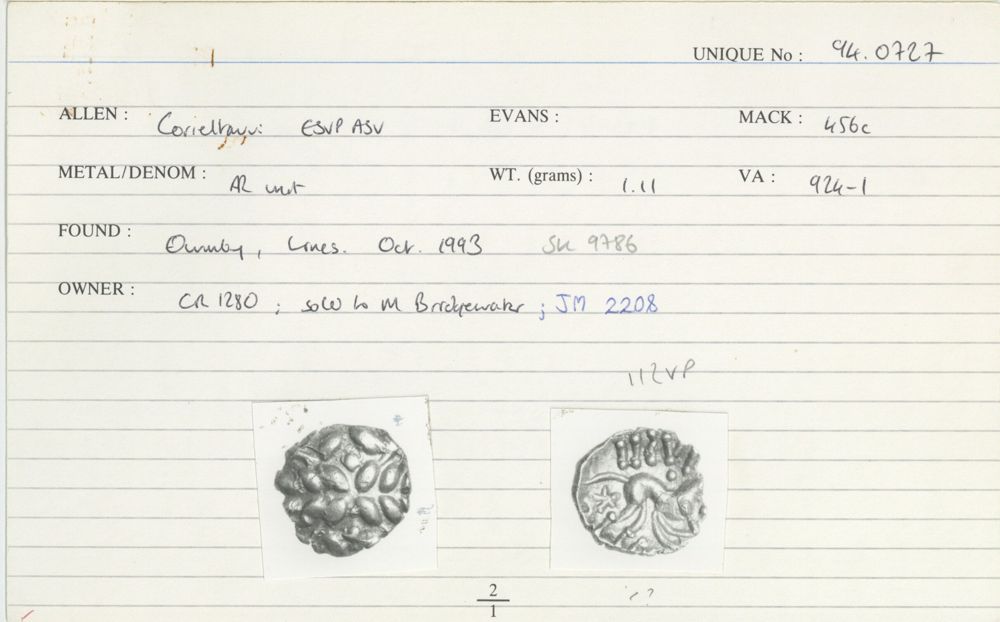 UNIQUE No : 94.0727
ALLEN : Corieltauvi ESVP ASV EVANS : MACK : 456c
METAL/DENOM : AR unit WT. (grams) : 1.11 VA : 924-1
FOUND : Owmby, Lincs. Oct. 1993 SK 9786
OWNER : CR 1280 ; sold to M Bridgewater ; JM 2208
2
1